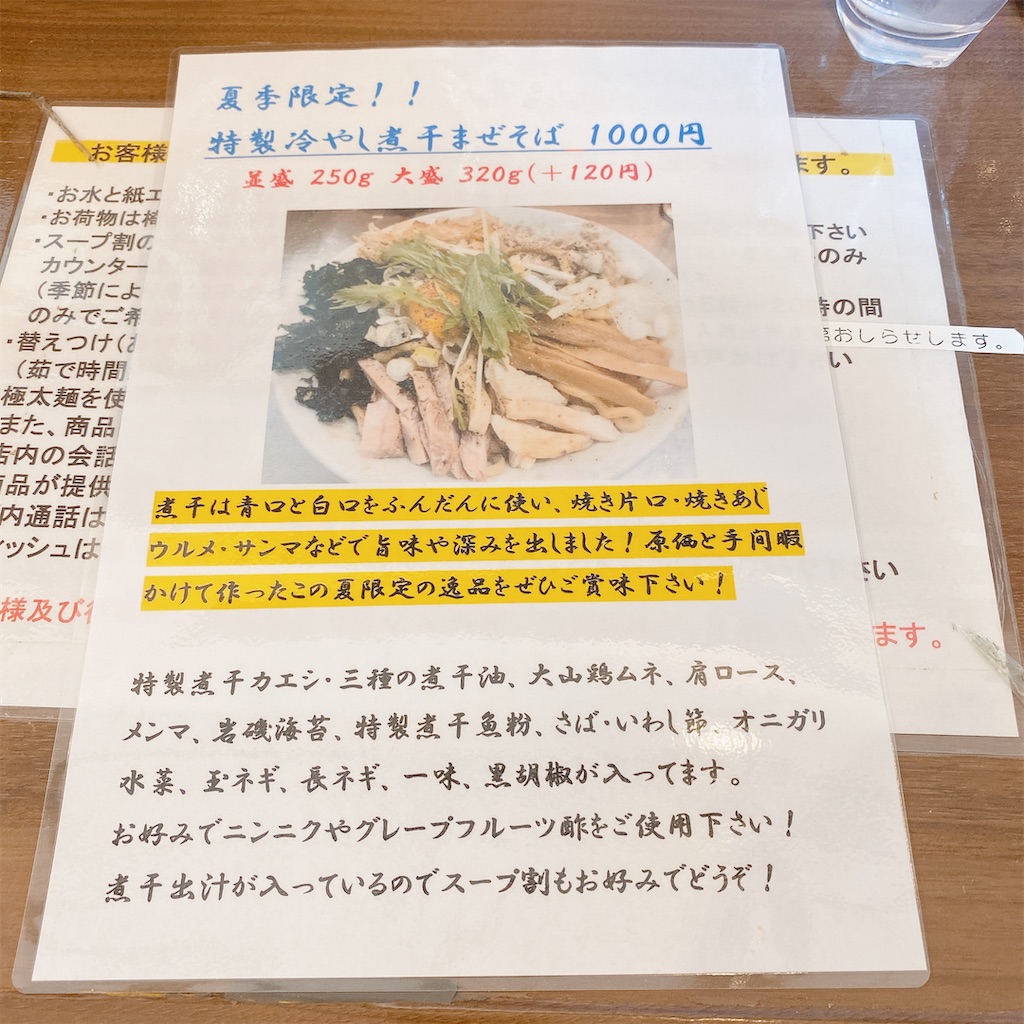 夏季限定！！
特製冷やし煮干まぜそば 1000円
並盛 250g 大盛 320g(＋120円)
煮干は青口と白口をふんだんに使い、焼き片口・焼きあじ
ウルメ・サンマなどで旨味や深みを出しました！原価と手間暇
かけて作ったこの夏限定の逸品をぜひご賞味下さい！
特製煮干カエシ・三種の煮干油、大山鶏ムネ、肩ロース、
メンマ、岩磯海苔、特製煮干魚粉、さば・いわし節、オニガリ
水菜、玉ネギ、長ネギ、一味、黒胡椒が入ってます。
お好みでニンニクやグレープフルーツ酢をご使用下さい！
煮干出汁が入っているのでスープ割もお好みでどうぞ！
お客様
・お水と紙エ
・お荷物は
・スープ割の
カウンター
（季節によ
のみでご希
・替えつけ(
（茹で時間
極太麺を使
また、商品
店内の会話
商品が提供
内通話は
ィッシュは
様及び
ます。
下さい
のみ
時の間
おしらせします。
い
さい
ます。